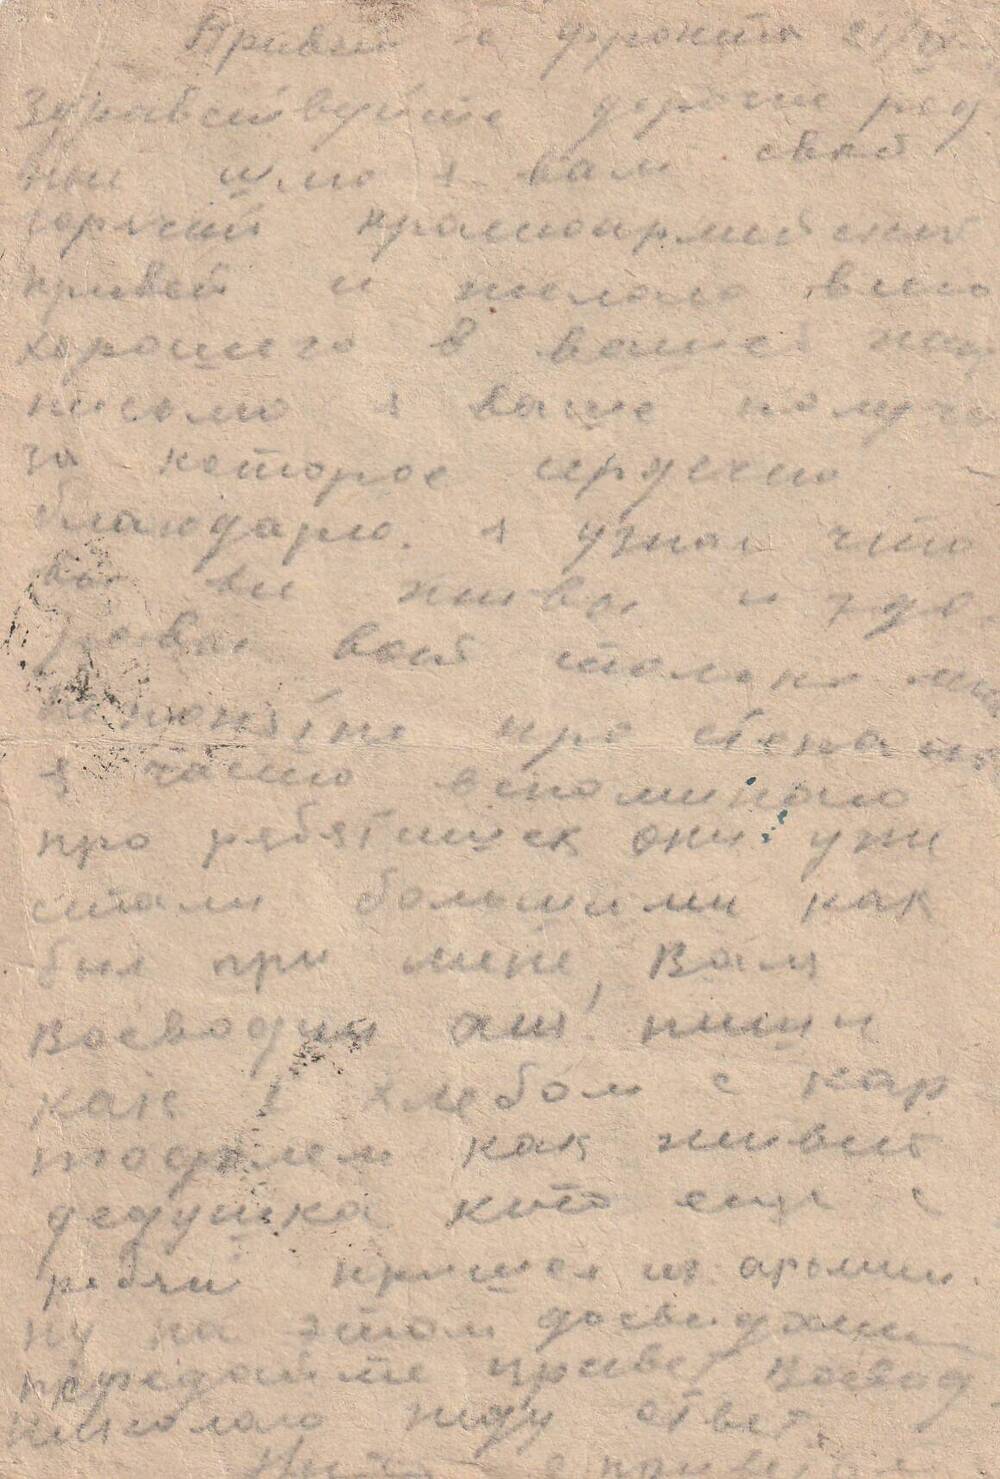 Привет с фронта 21/
Здравствуйте дорогие род
ные шлю я вам свой
горячий красноармейский
привет и желаю всего
хорошего в вашей
письмо я ваше получи
за которое сердечно
благодарю. я узнал что
вы все живы и здо
ровы вот только
про Степана
я часто вспоминаю
про рябятишек они ужи
стали большими как
был при мене, Валя
Воеводин пиши
как с хлебом с кар
тофелем как живет
дедушка кто еще с
ребят пришел из армии.
ну на этом досвидание
передайте привет Воевод
Николаю жду ответ.
с приветом